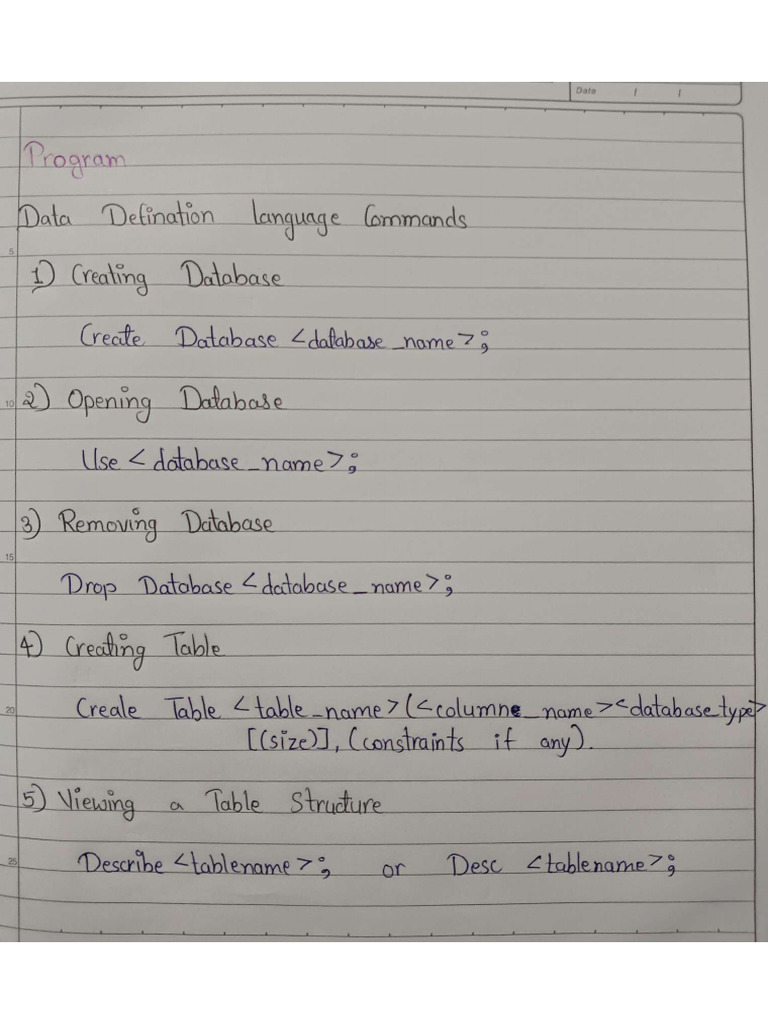 Date / /
Program
Data Defination language Commands
5
1) Creating Database
Create Database <database_name>;
10
2) Opening Database
Use <database_name>;
3) Removing Database
15
Drop Database <database_name>;
4) Creating Table
20
Create Table <table_name>(<columne_name><database_type>
[(size)], (constraints if any).
5) Viewing a Table Structure
25
Describe <tablename>; or Desc <tablename>;